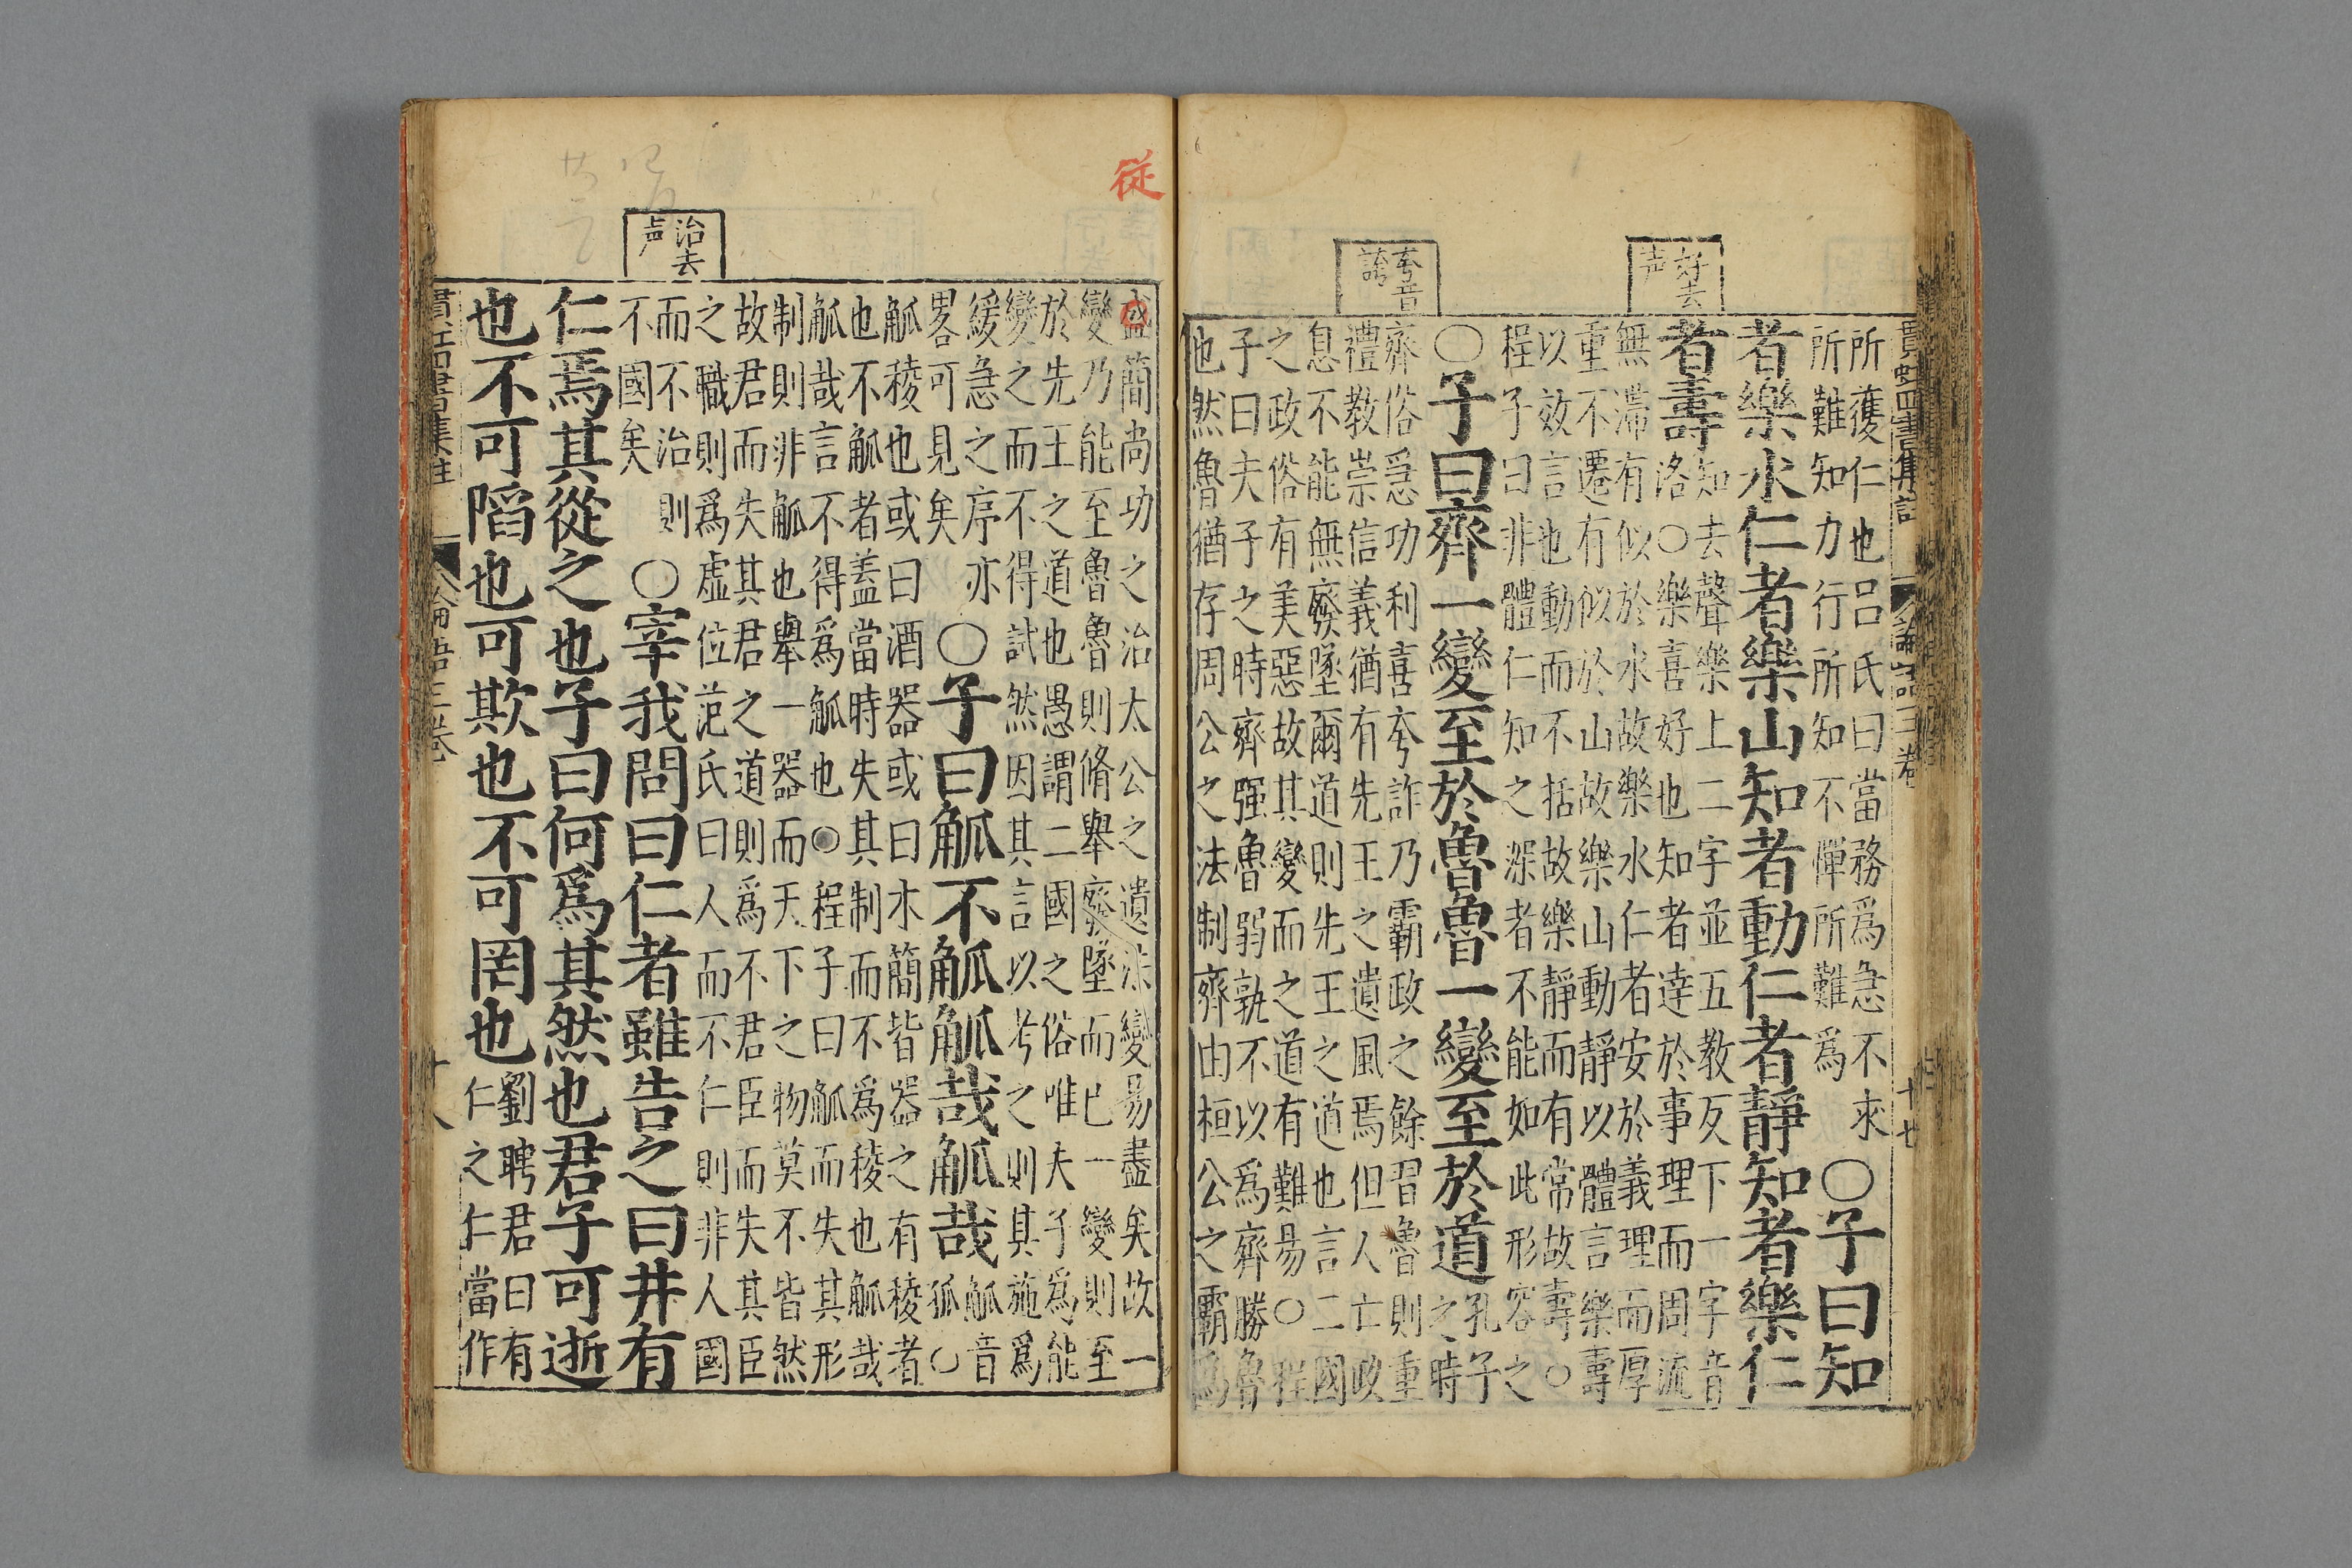 貫虹四書集註 論語三卷 十七
好去
声
夸音
誇
所獲仁也呂氏曰當務爲急不求
所難知力行所知不憚所難爲
○子曰知
者樂水仁者樂山知者動仁者靜知者樂仁
者壽
知去聲樂上二字並五教反下一字音
洛○樂喜好也知者達於事理而周流
無滯有似於水故樂水仁者安於義理而厚
重不遷有似於山故樂山動靜以體言樂壽
以效言也動而不括故樂靜而有常故壽○
程子曰非體仁知之深者不能如此形容之
○子曰齊一變至於魯魯一變至於道
孔子
之時
齊俗急功利喜夸詐乃霸政之餘習魯則重
禮教崇信義猶有先王之遺風焉但人亡政
息不能無廢墜爾道則先王之道也言二國
之政俗有美惡故其變而之道有難易○程
子曰夫子之時齊强魯弱孰不以爲齊勝魯
也然魯猶存周公之法制齊由桓公之霸爲
從
治去
声
簡尚功之治太公之遺法變易盡矣故一
變乃能至魯魯則脩舉廢墜而已一變則至
於先王之道也愚謂二國之俗唯夫子爲能
變之而不得試然因其言以考之則其施爲
緩急之序亦
畧可見矣
○子曰觚不觚觚哉觚哉
觚音
孤○
觚稜也或曰酒器或曰木簡皆器之有稜者
也不觚者蓋當時失其制而不爲稜也觚哉
觚哉言不得爲觚也○程子曰觚而失其形
制則非觚也舉一器而天下之物莫不皆然
故君而失其君之道則爲不君臣而失其臣
之職則爲虛位范氏曰人而不仁則非人國
而不治則
不國矣
○宰我問曰仁者雖告之曰井有
仁焉其從之也子曰何爲其然也君子可逝
也不可陷也可欺也不可罔也
劉聘君曰有
仁之仁當作
貫虹四書集註 論語三卷 十八